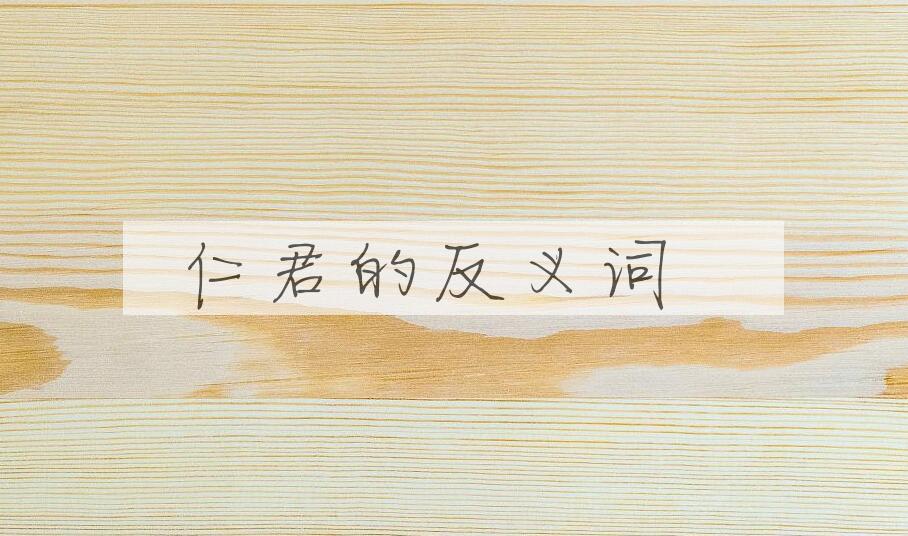 仁君的反义词